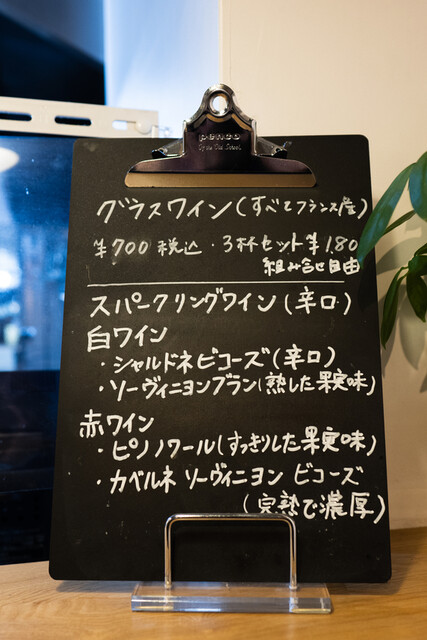 penco
グラスワイン(すべてフランス産)
¥700 税込・3杯セット¥1.80
組み合せ自由
スパークリングワイン(辛口)
白ワイン
・シャルドネビコーズ(辛口)
・ソーヴィニヨンブラン(熟した果実味)
赤ワイン
・ピノノワール(すっきりした果実味)
・カベルネ ソーヴィニヨン ビコーズ
(完熟で濃厚)